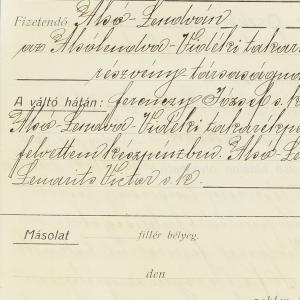 Fizetendő Alsó-Lendván
az Alsólendva-Vidéki takar
részvény társaságna
A váltó hátán: ferenczy József s. k
Alsó-Lendva-Vidéki takarékp
felvettem készpénzben. Alsó-Le
Lenarits Victor s. k.
Másolat fillér bélyeg.
den